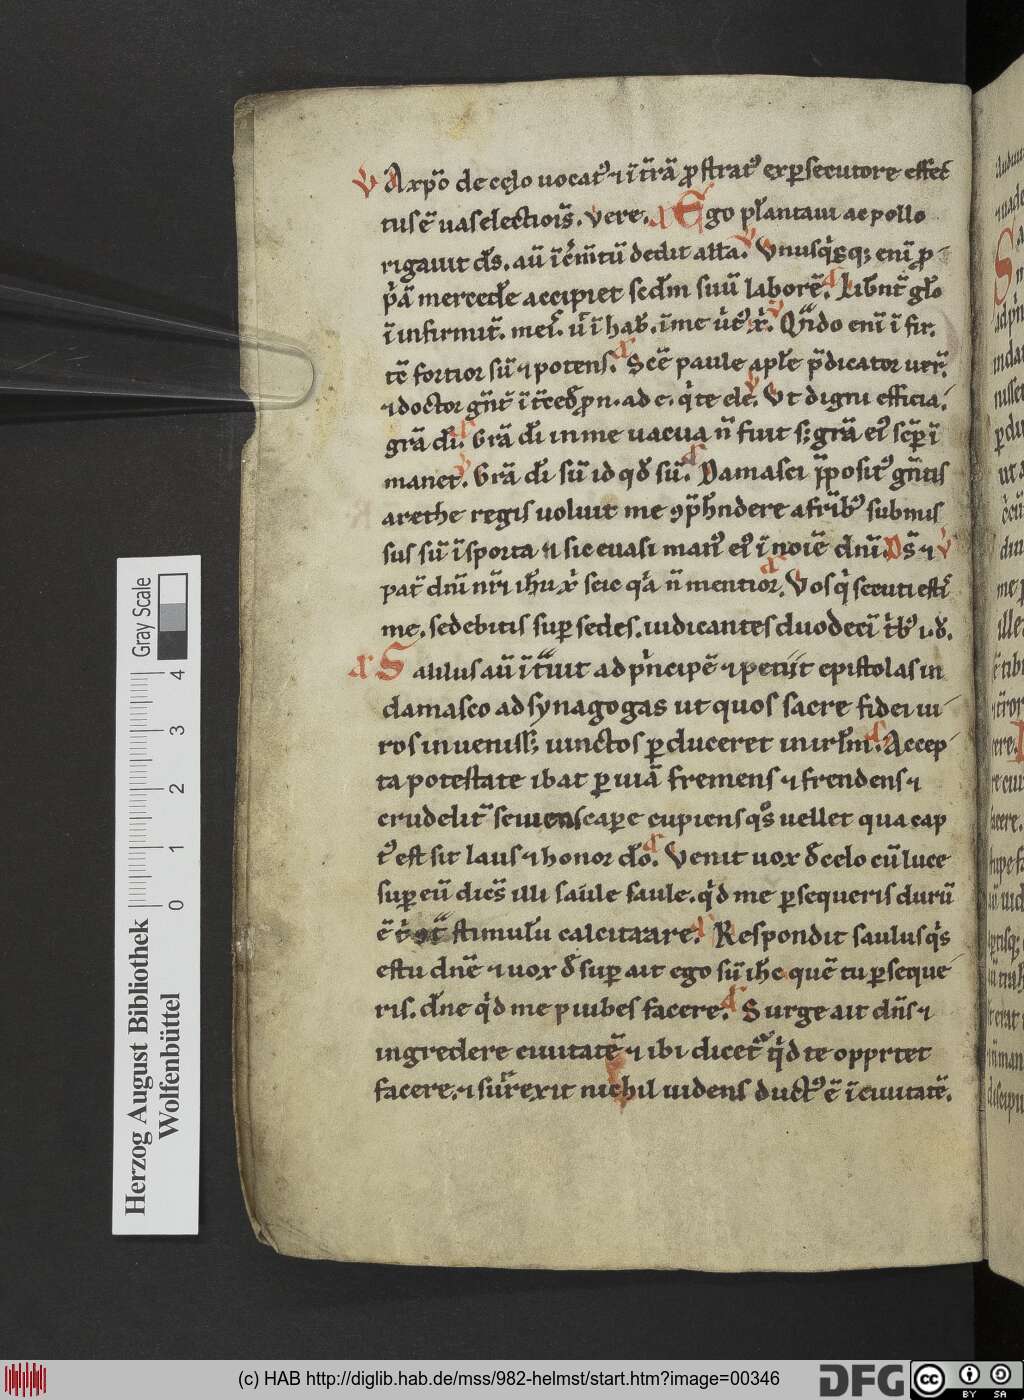 V A xp̄o de celo uocat᷒ ⁊ ī t̄rā ꝓstrat᷒ exꝑsecutore effec
tus ē uas electiois̄. Vere. a Ego pl̄antaui apollo
rigauit d̄s. aū īc̄m̄tū dedit alla. V Vnusq̇sq; enī ꝓ
p̄ā mercedē accipiet scd̄m suū laborē. a Lib̄nt̄ gl̄o
ī infirmit̄. meı̄. ī hab̄. ī me Qn̄do enī ī fir.
tē fortior sū ⁊ potens. a Sc̄e paule apl̄e p̄dicator uer̄.
⁊ doctor gn̄t̄ ꝓ n. ad c. q̇ te ele. V Vt digni efficia.
grā dı̄. a Grā dı̄ in me uacua n̄ fuit s; grā ei᷒ sēꝑ ī
manet. V Grā dı̄ sū id qd̄ sū. a Damasci p̄posit᷒ gn̄tis
arethe regis uoluit me ꝯp̄h̄ndere a fr̄ib᷒ submis
sus sū ī sporta ⁊ sic euasi man᷒ ei᷒ ī noīe dn̄ı. D s̄ ⁊ V
pat̄ dn̄ı nr̄ı ih̄u x̄ scie q̇a n̄ mentior. a Vos q̇ secuti estı̄
me. sedebitis suꝑ sedes. iudicantes duodecī t̄b᷒ i. d̄.
a Saulus aū ītuit ad p̄ncipē ⁊ petiit epistolas in
damasco ad synagogas ut quos sacre fidei ui
ros inueniss; uinctos ꝑduceret in irl̄m. a Accep
ta potestate ibat ꝑ uiā fremens ⁊ frendens ⁊
crudelit̄ seuiens caꝑe cupiens q᷒s uellet qua cap
t᷒ est sit laus ⁊ honor dō. a Venit uox d̄ celo cū luce
suꝑ eū dicēs illi saule saule. q̇d me ꝑsequeris durū
ē stimulū calcitrare. a Respondit saulus q̇s
es tu dn̄e ⁊ uox d̄ suꝑ ait ego sū ih̄c quē tu ꝑseque
ris. dn̄e q̇d me p iubes facere. a Surge ait dn̄s ⁊
ingredere ciuitatē ⁊ ibi dicet̄ q̇d te opprtet
facere. ⁊ surrexit nichil uidens duct᷒ ē ī ciuitatē.
Herzog August Bibliothek
Wolfenbüttel
Gray Scale
0 1 2 3 4
(c) HAB http://diglib.hab.de/mss/982-helmst/start.htm?image=00346
DFG
cc BY SA